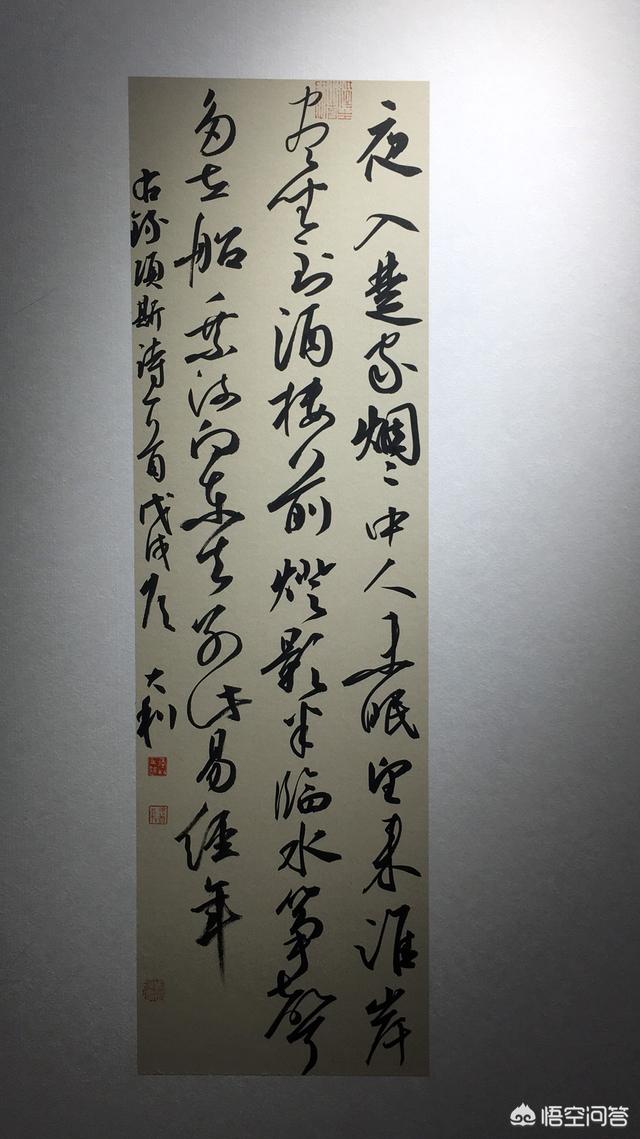 夜入楚家烟烟中人未眠望来淮岸
尽坐到酒楼前灯影半临水筝声
多在船乘流向东去别此易经年
右录项斯诗一首戊戌夏 大利
悟空问答